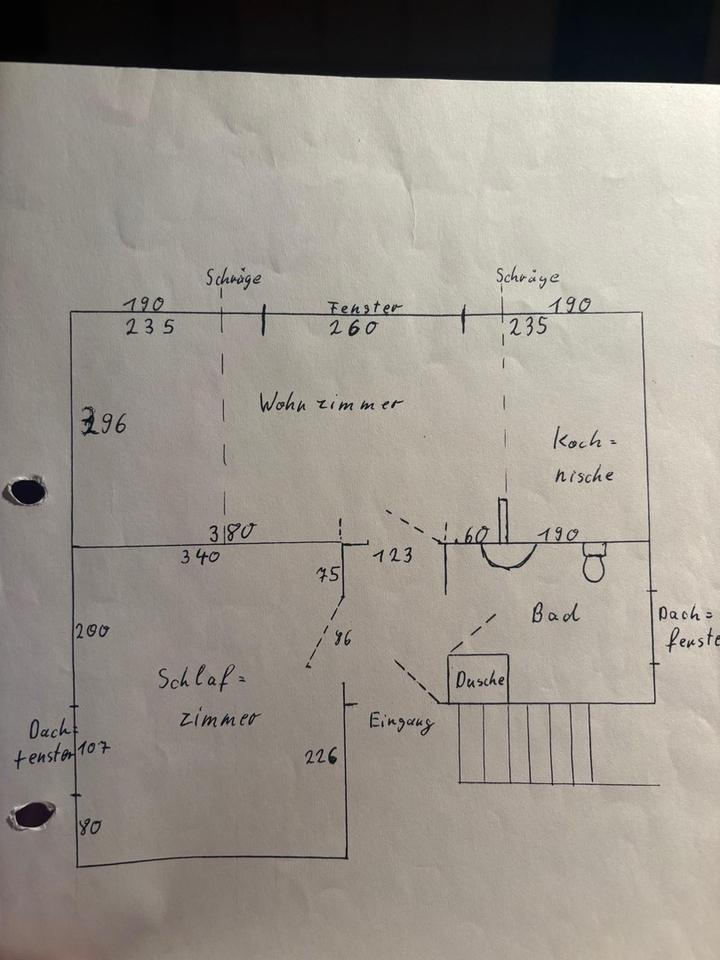 Schräge
Schräge
190
Fenster
190
235
260
235
Wohnzimmer
296
Koch=
nische
380
60
190
340
123
75
200
96
Bad
Dach=
fenste
Schlaf=
zimmer
Dusche
Eingang
Dach=
fenster
107
226
80